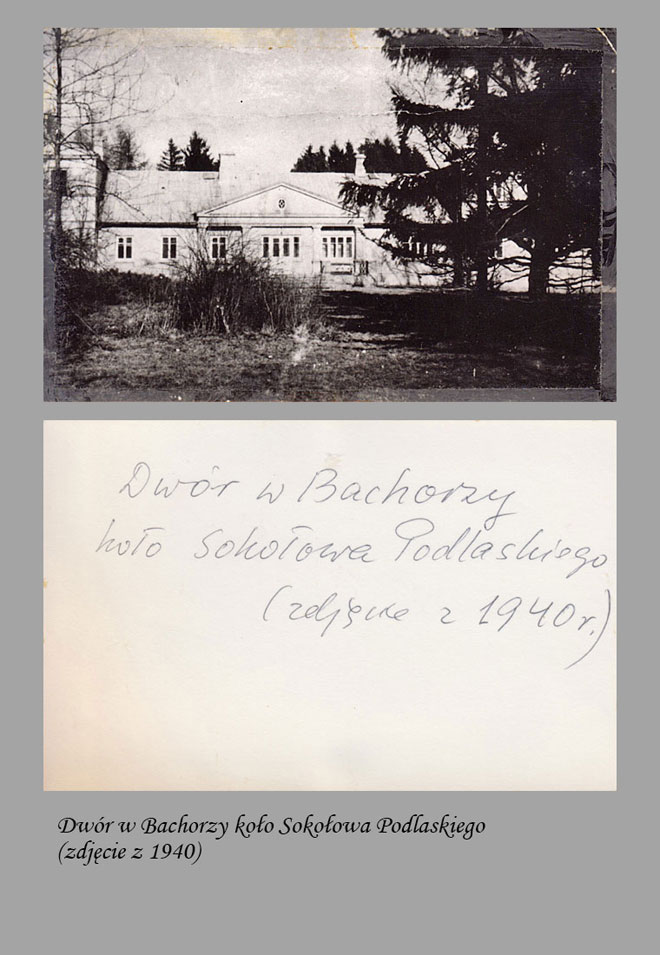 Dwór w Bachorzy
koło Sokołowa Podlaskiego
(zdjęcie z 1940 r.)
Dwór w Bachorzy koło Sokołowa Podlaskiego
(zdjęcie z 1940)